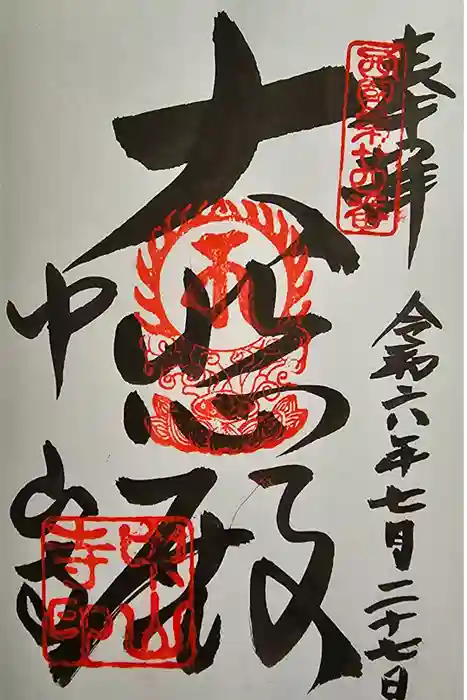 奉拝
西国第廿四番
令和六年七月二十七日
大悲殿
中山寺
中山寺印